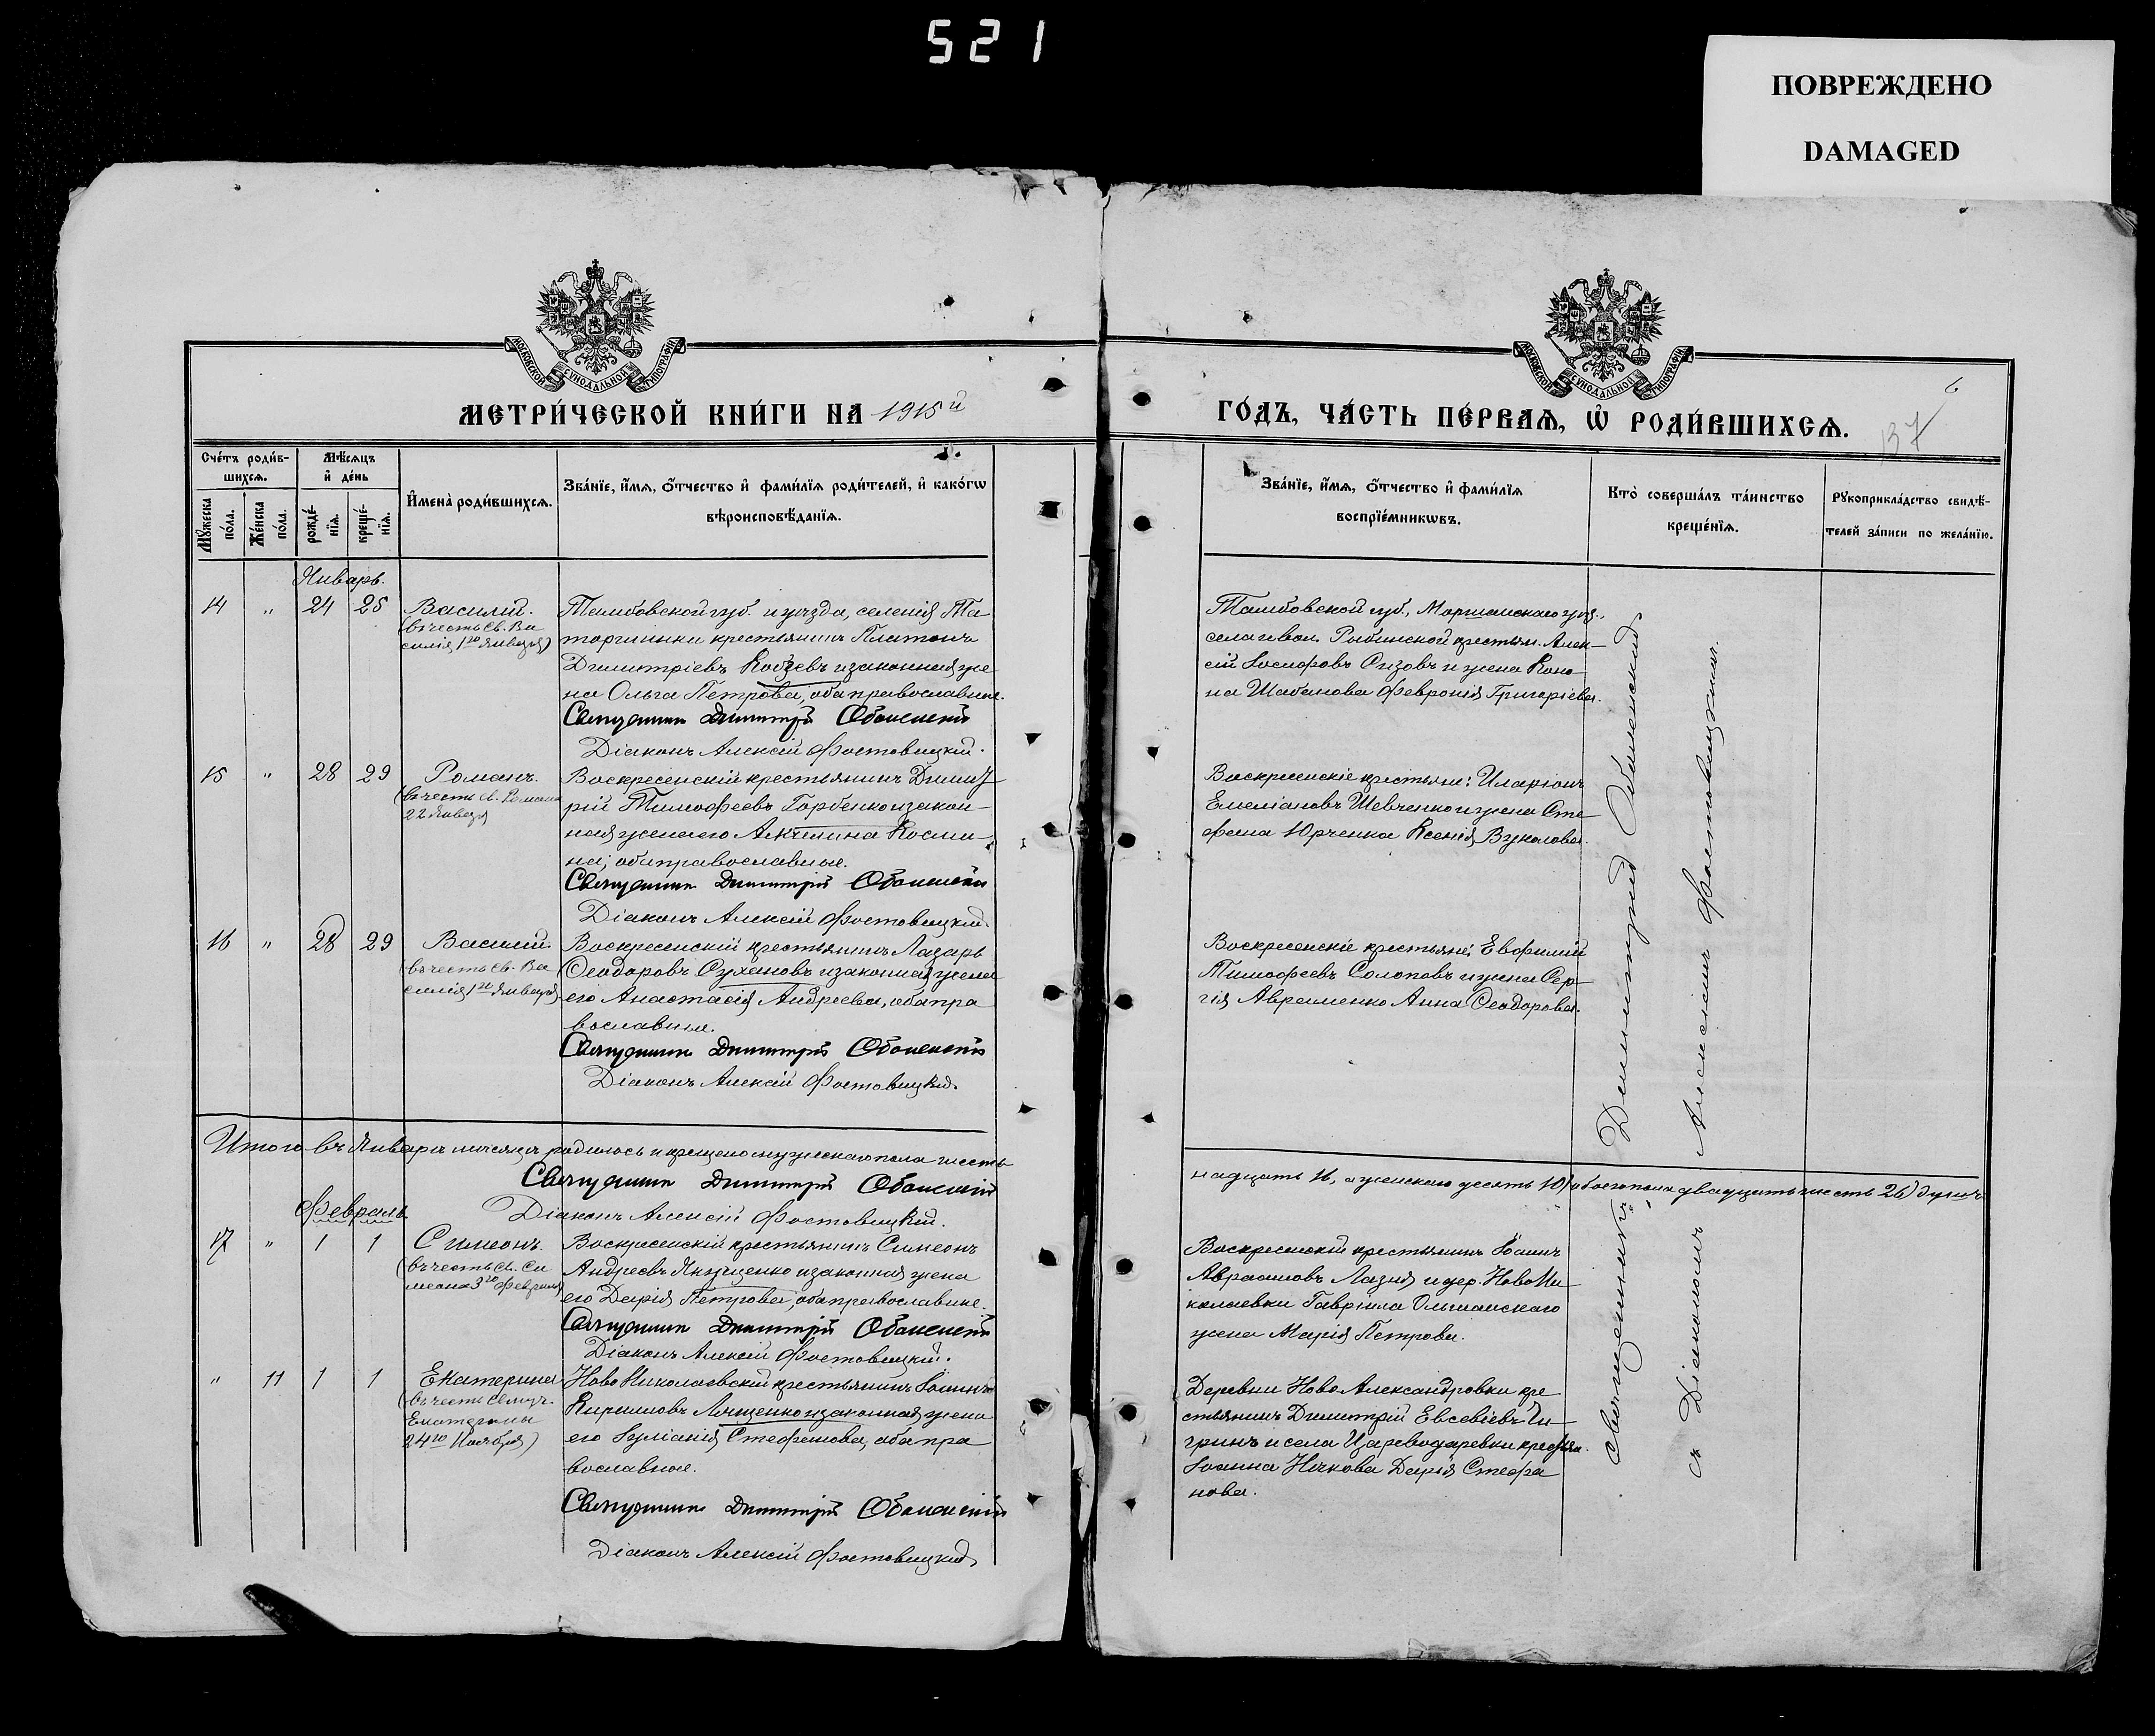 521
ПОВРЕЖДЕНО
DAMAGED
МОСКОВСКОЙ СѴНОДАЛЬНОЙ ТИПОГРАФІИ
МОСКОВСКОЙ СѴНОДАЛЬНОЙ ТИПОГРАФІИ
МЕТРИ́ЧЕСКОЙ КНИ́ГИ НА 1915й
ГО́ДЪ, ЧА́СТЬ ПЕ́РВАѦ, Ѡ҆ РОДИ́ВШИХСѦ.
6
137
Сче́тъ роди́в-
шихсѧ.
Мꙋ́жеска по́ла.
Же́нска по́ла.
Мѣ́сѧцъ
и҆ де́нь
рожде́-нїѧ.
креще́-нїѧ.
И҆мена̀ роди́вшихсѧ.
Зва́нїе, и҆́мѧ, ѻ҆́тчество и҆ фами́лїѧ роди́телей, и҆ како́гѡ
вѣроисповѣ́данїѧ.
Зва́нїе, и҆́мѧ, ѻ҆́тчество и҆ фами́лїѧ
воспрїе́мникѡвъ.
Кто̀ соверша́лъ та́инство
креще́нїѧ.
Рꙋкоприкла́дство свидѣ́-
телей за́писи по жела́нїю.
Январь.
14 " 24 25 Василій.
(въ честь св. Ва
силія 1го Января)
Тамбовской губ. и уѣзда, селенія Та
торшинки крестьянинъ Платонъ
Димитріевъ Кобзевъ и законная же
на Ольга Петрова, оба православные.
Священникъ Димитрій Оболенскій
Діаконъ Алексій Фостовицкій.
Тамбовской губ., Моршанскаго уѣз.,
села и вол. Рыбинской крестьян. Алек-
сій Іосифовъ Сизовъ и жена Коно-
на Шабанова Февронія Григоріева.
15 " 28 29 Романъ.
(въ честь св. Романа
22 Января
Воскресенскій крестьянинъ Димит
рій Тимофеевъ Горбенко и закон-
ная жена его Акилина Косми-
на; оба православные.
Священникъ Димитрій Оболенскій
Діаконъ Алексій Фостовицкій.
Воскресенскіе крестьяне: Иларіонъ
Емеліановъ Шевченко и жена Сте-
фана Юрченка Ксенія Вуколова.
16 " 28 29 Василій.
(въ честь св. Ва
силія 1го Января)
Воскресенскій крестьянинъ Лазарь
Ѳеодоровъ Сухановъ и законная жена
его Анастасія Андреева, оба пра
вославные.
Священникъ Димитрій Оболенскій
Діаконъ Алексій Фостовицкій.
Воскресенскіе крестьяне: Евфимій
Тимофеевъ Солоповъ и жена Сер-
гія Авраменко Анна Ѳеодорова.
Итого въ Январѣ мѣсяцѣ родилось и крещено мужескаго пола шест
надцать 16, а женскаго десять 10, обоего пола двадцать шесть 26) душъ.
Священникъ Димитрій Оболенскій
Діаконъ Алексій Фостовицкій.
Февраль
17 " 1 1 Симеонъ.
(въ честь св. Си
меона 3го Февраля)
Воскресенскій крестьянинъ Симеонъ
Андреевъ Якущенко и законная жена
его Дарія Петрова, оба православные.
Священникъ Димитрій Оболенскій
Діаконъ Алексій Фостовицкій.
Воскресенскій крестьянинъ Іоаннъ
Авраамовъ Лазня и дер. Ново Ни-
колаевки Гавріила Ольшанскаго
жена Марія Петрова.
" 11 1 1 Екатерина
(въ честь велмуч.
Екатерины
24го Ноября)
Ново Николаевскій крестьянинъ Іоаннъ
Кирилловъ Лященко и законная жена
его Іуліанія Стефанова, оба пра
вославные.
Священникъ Димитрій Оболенскій
Діаконъ Алексій Фостовицкій
Деревни Ново Александровки кре
стьянинъ Димитрій Евсевіевъ Чи-
гринъ и села Цареводаревки крестьян.
Іоанна Ночкова Дарія Стефа
нова.
Священникъ Димитрій Оболенскій
съ Діакономъ Алексіемъ Фостовицкимъ.